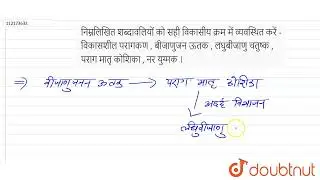 112173632
निम्नलिखित शब्दावलियों को सही विकासीय क्रम में व्यवस्थित करें -
विकासशील परागकण , बीजाणुजन ऊतक , लघुबीजाणु चतुष्क ,
पराग मातृ कोशिका , नर युग्मक ।
⇒ बीजाणुजनन ऊतक → पराग मातृ कोशिका
↓ अर्द्ध विभाजन
लघुबीजाणु
doubtnut